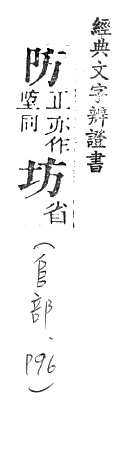 經典文字辨證書
防正亦作埅同坊省
(𨸏部.P96)